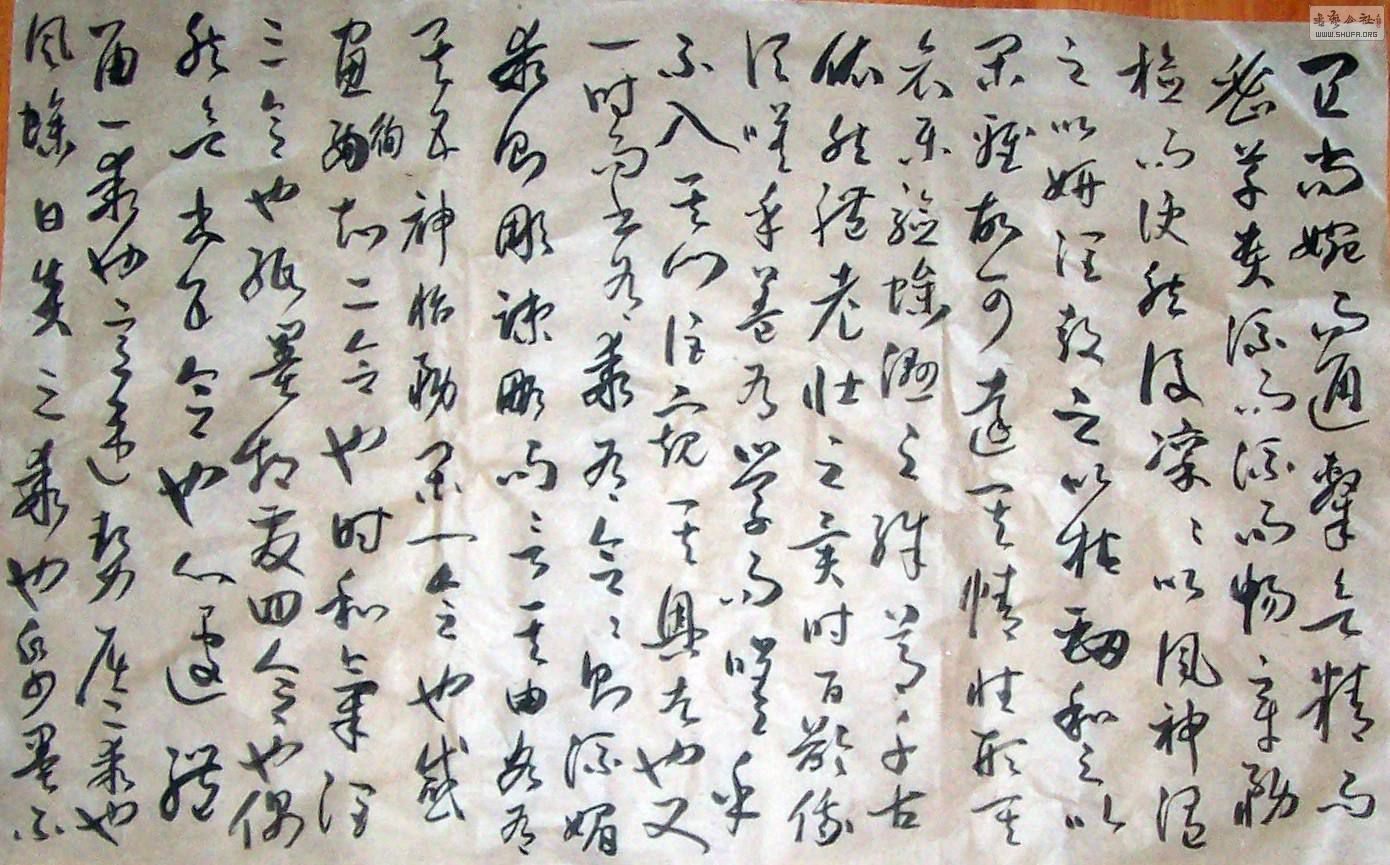 且尚婉而通隸欲精而
密草貴流而流而暢章務
檢而便然後凜々以風神溫
之以妍潤鼓之以枯勁和之以
閑雅故可達其情性形其
哀樂驗燥濕之殊節千古
依然體老壯之異時百齡俄
頃嗟乎蓋有學而乎
不入其門詎窺其奧者也又
一時而書有乖有合々則流媚
乖則雕疎略而言其由各有
其五神怡務閑一合也感
惠徇知二合也時和氣潤
三合也紙墨相發四合也偶
然欲書五合也心遽體
留一乖也意違勢屈二乖也
風燥日炎之乖也紙墨不
WWW.SHUFA.ORG